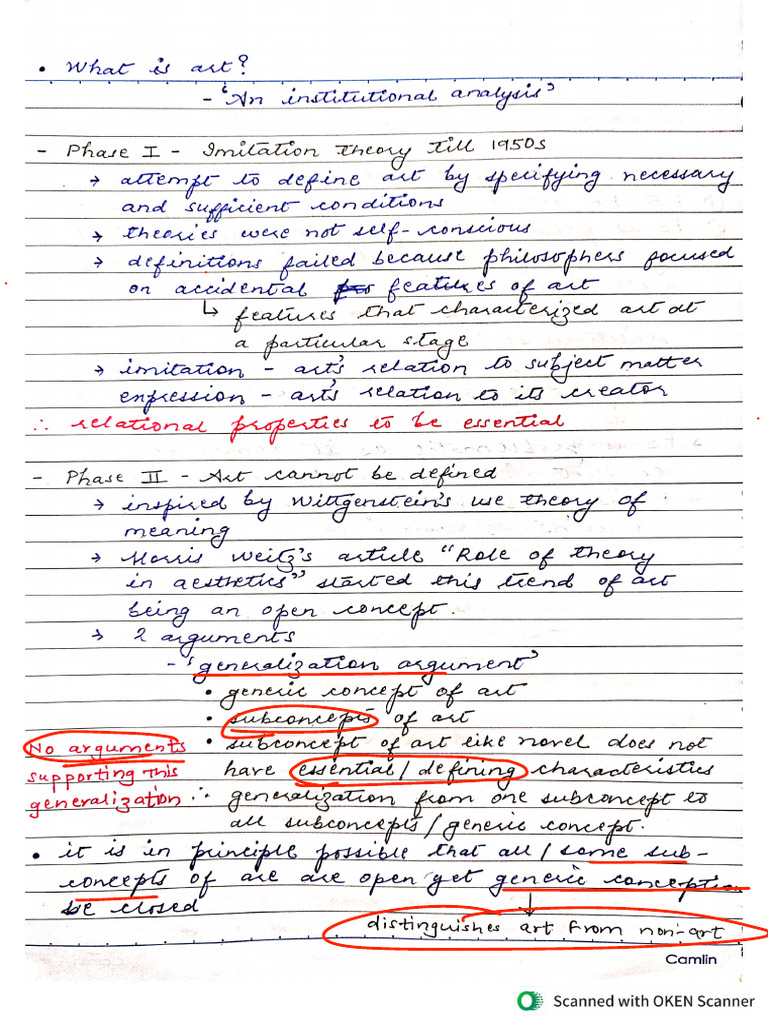 • What is art?
- 'An institutional analysis'
- Phase I - Imitation theory till 1950s
→ attempt to define art by specifying necessary
and sufficient conditions
→ theories were not self-conscious
→ definitions failed because philosophers focused
on accidental features of art
↳ features that characterized art at
a particular stage
→ imitation - art's relation to subject matter
expression - art's relation to its creator
∴ relational properties to be essential
- Phase II - Art cannot be defined
→ inspired by Wittgenstein's use theory of
meaning
→ Morris Weitz's article "Role of theory
in aesthetics" started this trend of art
being an open concept.
→ 2 arguments
- 'generalization argument'
• generic concept of art
• subconcepts of art
No arguments
supporting this
generalization
• subconcept of art like novel does not
have essential/defining characteristics
∴ generalization from one subconcept to
all subconcepts/generic concept.
• it is in principle possible that all/some sub-
concepts of are are open yet generic conception
be closed
↓
distinguishes art from non-art
Camlin
Scanned with OKEN Scanner